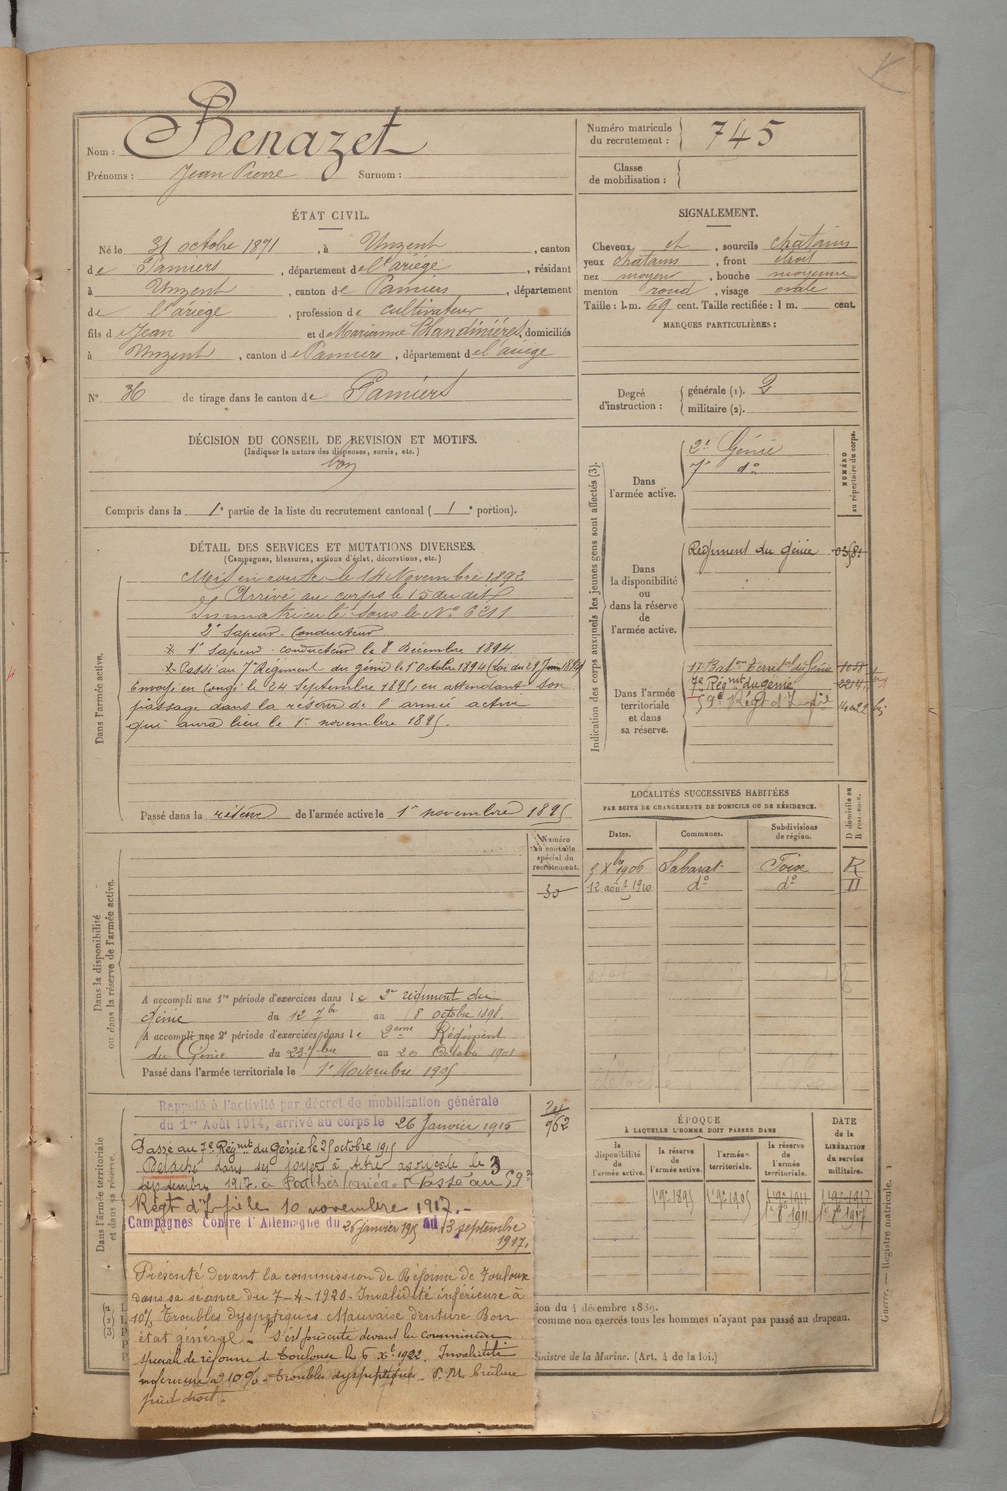 Nom : Benazet
Prénoms : Jean Pierre Surnom :
Numéro matricule du recrutement : 745
Classe de mobilisation :
ÉTAT CIVIL.
Né le 31 octobre 1871, à Unzent, canton
de Pamiers, département de l'ariège, résidant
à Unzent, canton de Pamiers, département
de l'ariège, profession de cultivateur
fils de Jean et de Marianne Blandinières, domiciliés
à Unzent, canton de Pamiers, département de l'ariège
N° 36 de tirage dans le canton de Pamiers
SIGNALEMENT.
Cheveux et, sourcils chatains
yeux chatains, front étroit
nez moyen, bouche moyenne
menton rond, visage ovale
Taille : 1 m. 69 cent. Taille rectifiée : 1 m. cent.
MARQUES PARTICULIÈRES :
Degré d'instruction : générale (1). 2
militaire (2).
DÉCISION DU CONSEIL DE REVISION ET MOTIFS.
(Indiquer la nature des dispenses, sursis, etc.)
bon
Compris dans la 1e partie de la liste du recrutement cantonal (1e portion).
DÉTAIL DES SERVICES ET MUTATIONS DIVERSES.
(Campagnes, blessures, actions d'éclat, décorations, etc.)
Dans l'armée active.
Mis en route le 14 Novembre 1892
Arrivé au corps le 15 du dit
Immatriculé sous le No 6211
2e Sapeur-Conducteur
* 1e sapeur-conducteur le 8 décembre 1894
* Passé au 7e Régiment du génie le 1e Octobre 1894 (Loi du 29 Juin 1894)
Envoyé en congé le 24 Septembre 1895, en attendant son
passage dans la réserve de l'armée active
qui aura lieu le 1er novembre 1895.
Passé dans la réserve de l'armée active le 1er novembre 1895
Indication des corps auxquels les jeunes gens sont affectés (3).
NUMÉRO au répertoire du corps.
Dans l'armée active.
2e Génie
7e do
Dans la disponibilité ou dans la réserve de l'armée active.
Régiment du génie
Dans l'armée territoriale et dans sa réserve.
7e Régmt du génie
59e Régt d'Infie
LOCALITÉS SUCCESSIVES HABITÉES
PAR SUITE DE CHANGEMENTS DE DOMICILE OU DE RÉSIDENCE.
Dates. Communes. Subdivisions de région. D domicile ou R résidence.
5 Xbre 1906 Sabarat Foix R
12 août 1910 do do
Dans la disponibilité ou dans la réserve de l'armée active.
Numéro au contrôle spécial du recrutement.
30
A accompli une 1re période d'exercices dans le 2e régiment du
génie du 12 7bre au 8 octobre 1898.
A accompli une 2e période d'exercices dans le 2eme Régiment
du Génie du 23 7bre au 20 Octobre 1901
Passé dans l'armée territoriale le 1e Novembre 1905
Dans l'armée territoriale et dans sa réserve.
Rappelé à l'activité par décret de mobilisation générale
du 1er Août 1914, arrivé au corps le 26 Janvier 1915
Passé au 7e Régmt du Génie le 25 octobre 1915
Détaché dans ses foyers à titre agricole le 3
septembre 1917 à Ariège. Passé au 59e
Régt d'Infie le 10 novembre 1917.-
Campagnes Contre l'Allemagne du 26 janvier 1915 au 3 septembre
1917.
Présenté devant la commission de Réforme de Toulouse
dans sa séance du 7-4-1920. Invalidité inférieure à
10% Troubles dyspeptiques Mauvaise denture Bon
état général - S'est présenté devant la commission
spéciale de réforme de Toulouse le 6 Xe 1922. Invalidité
inférieure à 10% - troubles dyspeptiques. brûlure
pied droit.
ÉPOQUE
À LAQUELLE L'HOMME DOIT PASSER DANS
la disponibilité de l'armée active. la réserve de l'armée active. l'armée territoriale. la réserve de l'armée territoriale.
DATE de la LIBÉRATION du service militaire.
Guerre. — Registre matricule.
ion du 4 décembre 1889.
comme non exercés tous les hommes n'ayant pas passé au drapeau.
inistre de la Marine. (Art. 4 de la loi.)